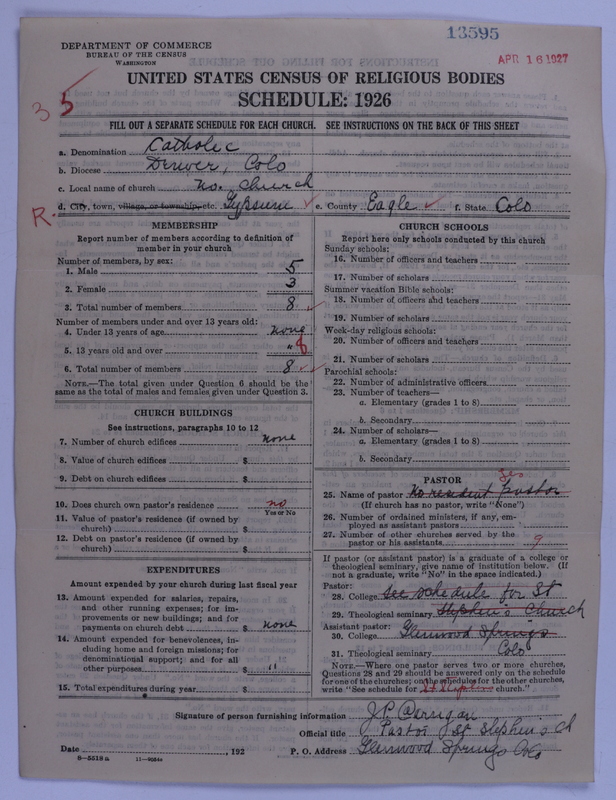 13595
APR 16 1927
DEPARTMENT OF COMMERCE
BUREAU OF THE CENSUS
WASHINGTON
UNITED STATES CENSUS OF RELIGIOUS BODIES
SCHEDULE: 1926
35
FILL OUT A SEPARATE SCHEDULE FOR EACH CHURCH. SEE INSTRUCTIONS ON THE BACK OF THIS SHEET
a. Denomination Catholic
b. Diocese Denver, Colo
c. Local name of church no. Church
R.
d. City, town, village, or township, etc. e. County Eagle f. State Colo
MEMBERSHIP
Report number of members according to definition of
member in your church
Number of members, by sex:
1. Male 5
2. Female 3
3. Total number of members 8
Number of members under and over 13 years old:
4. Under 13 years of age none
5. 13 years old and over " 8
6. Total number of members 8
NOTE.—The total given under Question 6 should be the
same as the total of males and females given under Question 3.
CHURCH BUILDINGS
See instructions, paragraphs 10 to 12
7. Number of church edifices none
8. Value of church edifices $
9. Debt on church edifices $
10. Does church own pastor's residence no
Yes or No
11. Value of pastor's residence (if owned by
church) $
12. Debt on pastor's residence (if owned by
church) $
EXPENDITURES
Amount expended by your church during last fiscal year
13. Amount expended for salaries, repairs,
and other running expenses; for im-
provements or new buildings; and for
payments on church debt $ none
14. Amount expended for benevolences, in-
cluding home and foreign missions; for
denominational support; and for all
other purposes $ "
15. Total expenditures during year $
CHURCH SCHOOLS
Report here only schools conducted by this church
Sunday schools:
16. Number of officers and teachers
17. Number of scholars
Summer vacation Bible schools:
18. Number of officers and teachers
19. Number of scholars
Week-day religious schools:
20. Number of officers and teachers
21. Number of scholars
Parochial schools:
22. Number of administrative officers
23. Number of teachers—
a. Elementary (grades 1 to 8)
b. Secondary
24. Number of scholars—
a. Elementary (grades 1 to 8)
b. Secondary
PASTOR Yes
25. Name of pastor No resident pastor
(If church has no pastor, write "None")
26. Number of ordained ministers, if any, em-
ployed as assistant pastors
27. Number of other churches served by the
pastor or his assistants 9
If pastor (or assistant pastor) is a graduate of a college or
theological seminary, give name of institution below. (If
not a graduate, write "No" in the space indicated.)
Pastor:
28. College See schedule for St
29. Theological seminary Stephen's Church
Assistant pastor:
30. College Glenwood Springs
31. Theological seminary Colo
NOTE.—Where one pastor serves two or more churches,
Questions 28 and 29 should be answered only on the schedule
for one of the churches; on the schedules for the other churches,
write "See schedule for St Stephens church."
Signature of person furnishing information J P Carrigan
Official title Pastor St Stephen's Ch
Date , 192 P. O. Address Glenwood Springs Colo
8—5518 a 11—9054a